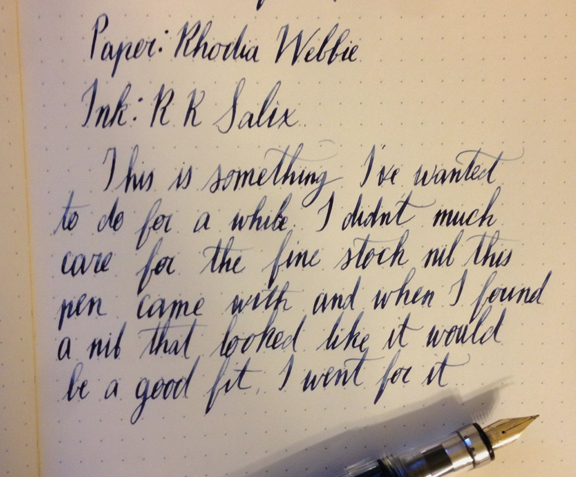 Paper: Rhodia Webbie
Ink: R K Salix
This is something I've wanted
to do for a while. I didn't much
care for the fine stock nib this
pen came with and when I found
a nib that looked like it would
be a good fit, I went for it